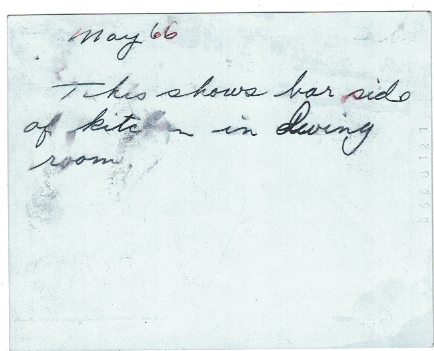 May 66
This shows bar side
of kitchen in living
room.